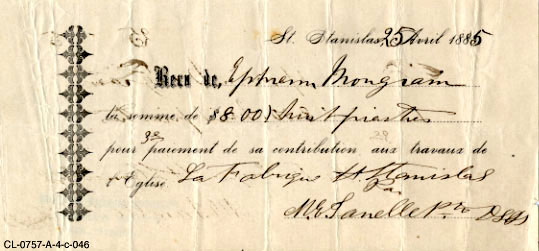 St. Stanislas, 25 Avril 1885
Recu de, Ephrem Mongrain
la somme de $8.00 huit piastres
pour 3e paiement de sa contribution aux travaux de
l'Eglise. La Fabrique St Stanislas
Par
Ptre
CL-0757-A-4-c-046